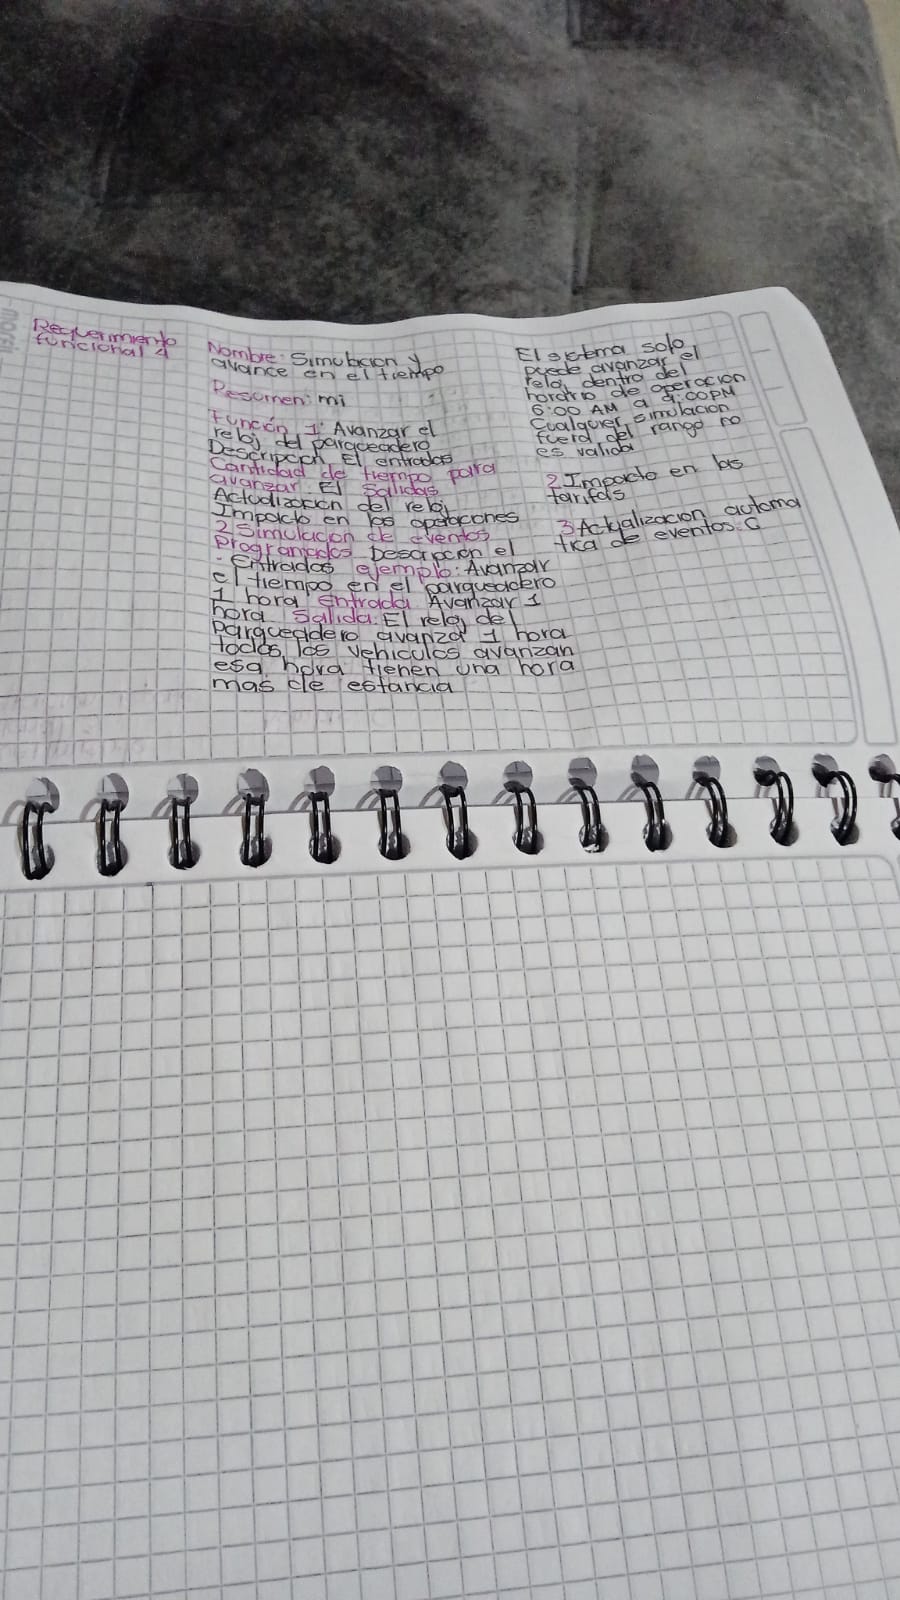 Requerimiento
funcional 4
Nombre: Simulacion y
avance en el tiempo
Resumen: mi
Función 1: Avanzar el
reloj del parqueadero
Descripcion El entradas
Cantidad de tiempo para
avanzar. El Salidas
Actualización del reloj
Impacto en las operaciones
2 Simulacion de eventos
Programados Descripcion el
- Entradas ejemplo: Avanzar
el tiempo en el parqueadero
1 hora entrada Avanzar 1
hora Salida: El reloj del
Parqueadero avanza 1 hora
todos los vehiculos avanzan
esa hora tienen una hora
mas de estancia
El sistema solo
puede avanzar el
reloj dentro del
horario de operacion
6:00 AM a 9:00PM
Cualquier simulacion
fuera del rango no
es valida
2 Impacto en las
tarifas
3 Actualizacion automa
tica de eventos: